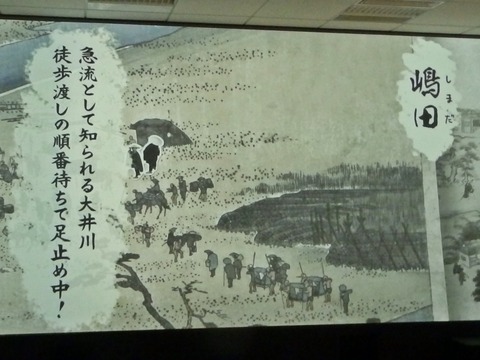 嶋田
しまだ
急流として知られる大井川
徒歩渡しの順番待ちで足止め中！